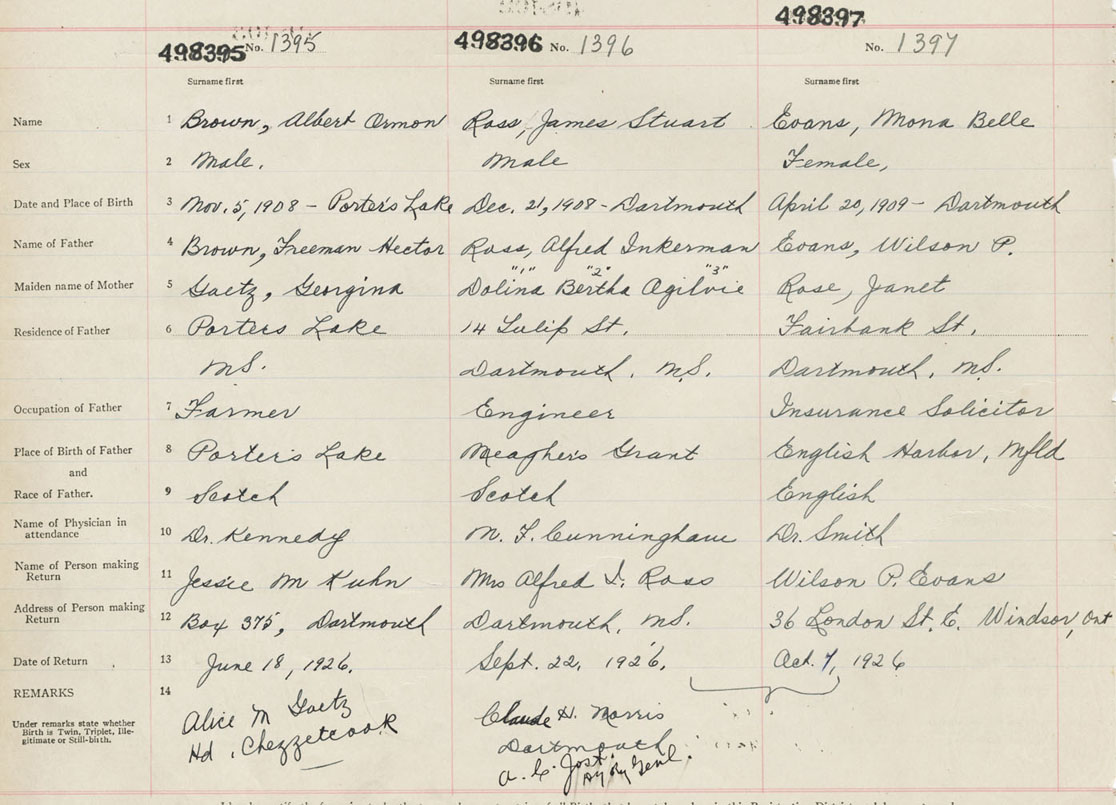 498395 No. 1395 498396 No. 1396 498397 No. 1397
Surname first Surname first Surname first
Name 1 Brown, Albert Ormon Ross, James Stuart Evans, Mona Belle
Sex 2 Male. Male Female,
Date and Place of Birth 3 Nov. 5, 1908 - Porter's Lake Dec. 21, 1908 - Dartmouth April 20, 1909 - Dartmouth
Name of Father 4 Brown, Freeman Hector Ross, Alfred Inkerman Evans, Wilson P.
"1" "2" "3"
Maiden name of Mother 5 Gaetz, Georgina Dolina Bertha Ogilvie Rose, Janet
Residence of Father 6 Porters Lake 14 Tulip St. Fairbank St.
N.S. Dartmouth, N.S. Dartmouth, N.S.
Occupation of Father 7 Farmer Engineer Insurance Solicitor
Place of Birth of Father 8 Porter's Lake Meagher's Grant English Harbor, Nfld
and
Race of Father. 9 Scotch Scotch English
Name of Physician in
attendance 10 Dr. Kennedy M. F. Cunningham Dr. Smith
Name of Person making
Return 11 Jessie M Kuhn Mrs Alfred I. Ross Wilson P. Evans
Address of Person making
Return 12 Box 375, Dartmouth Dartmouth, N.S. 36 London St. E. Windsor, Ont
Date of Return 13 June 18, 1926. Sept. 22, 1926. Oct. 7, 1926
REMARKS 14
Under remarks state whether
Birth is Twin, Triplet, Ille-
gitimate or Still-birth.
Alice M Gaetz Claude H. Morris
Hd. Chezzetcook Dartmouth
A. C. Jost.
Dy Rg Genl.